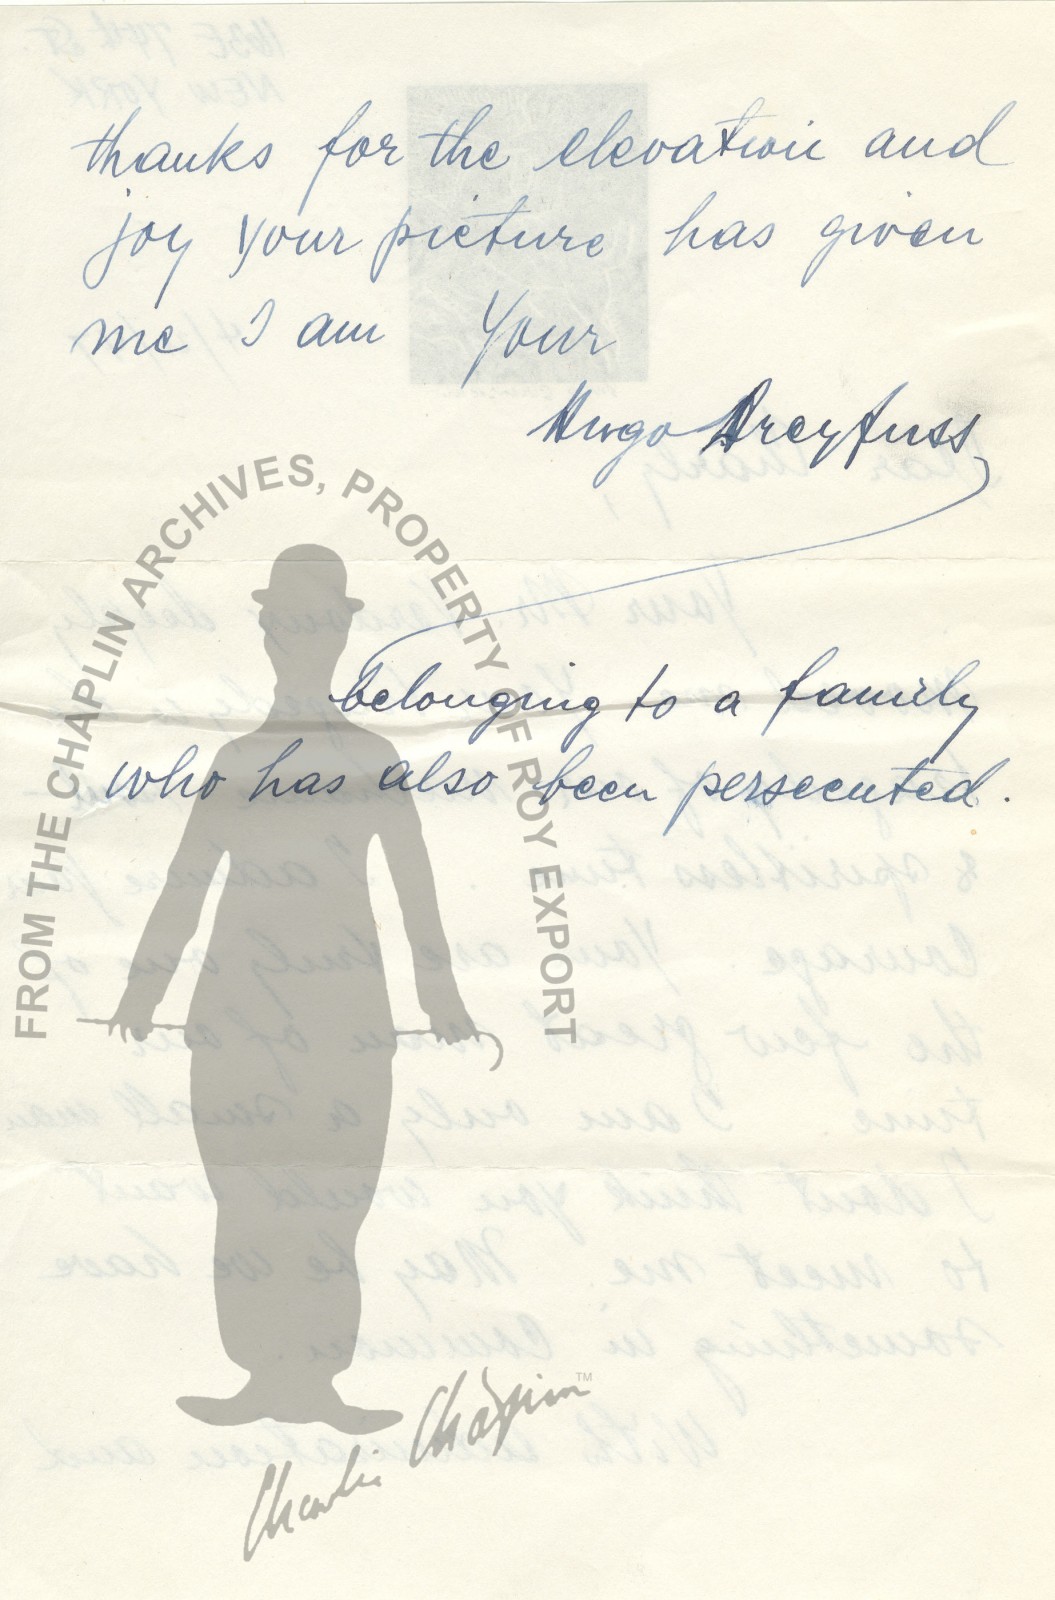 thanks for the elevation and
joy your picture has given
me I am Your
Hugo Dreyfuss
belonging to a family
who has also been persecuted.
FROM THE CHAPLIN ARCHIVES, PROPERTY OF ROY EXPORT
Charlie Chaplin™